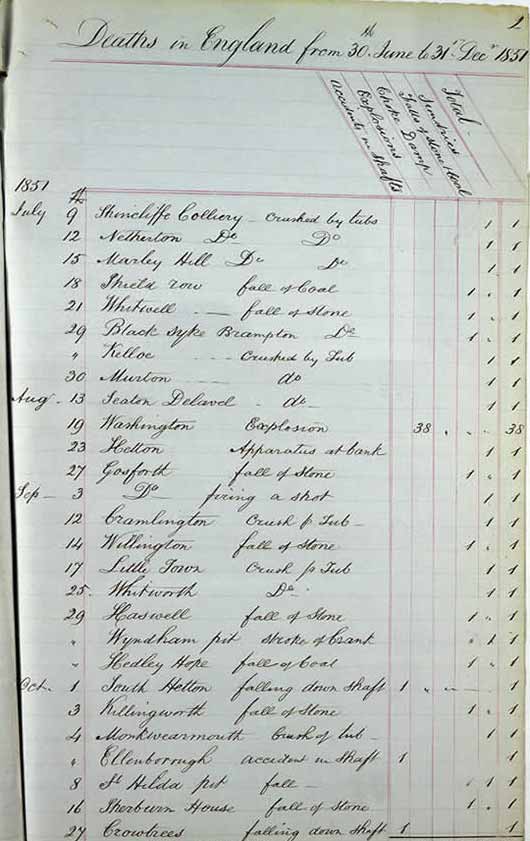 2
Deaths in England from 30th June to 31st Decr 1851
Accidents in Shafts
Explosions
Choke Damp
Falls of Stone & Coal
Sundries
Total
1851
July 9 Shincliffe Colliery - crushed by tubs 1 1
12 Netherton Do Do 1 1
15 Marley Hill Do Do 1 1
18 Shield row fall of Coal 1 " 1
21 Whitwell - fall of Stone 1 " 1
29 Black Syke Brampton Do 1 " 1
" Kelloe - crushed by Tub 1 1
30 Murton - do 1 1
Aug - 13 Seaton Delavel - do - 1 1
19 Washington Explosion 38 " " " 38
23 Hetton Apparatus at bank 1 1
27 Gosforth fall of Stone 1 " 1
Sep - 3 Do firing a shot 1 1
12 Cramlington Crush p Tub - 1 1
14 Willington fall of Stone 1 " 1
17 Little Town Crush p Tub 1 1
25. Whitworth Do 1 1
29 Haswell fall of Stone 1 " 1
" Wyndham pit stroke of Crank " 1 1
" Hedley Hope fall of Coal 1 " 1
Oct. 1 South Hetton falling down Shaft 1 " " - 1
3 Killingworth fall of Stone 1 " 1
4 Monkwearmouth Crush of tub - 1 1
" Ellenborough accident in Shaft 1 1
8 St Hilda pit fall - 1 " 1
16 Sherburn House fall of Stone 1 " 1
27 Crowtrees falling down Shaft 1 1